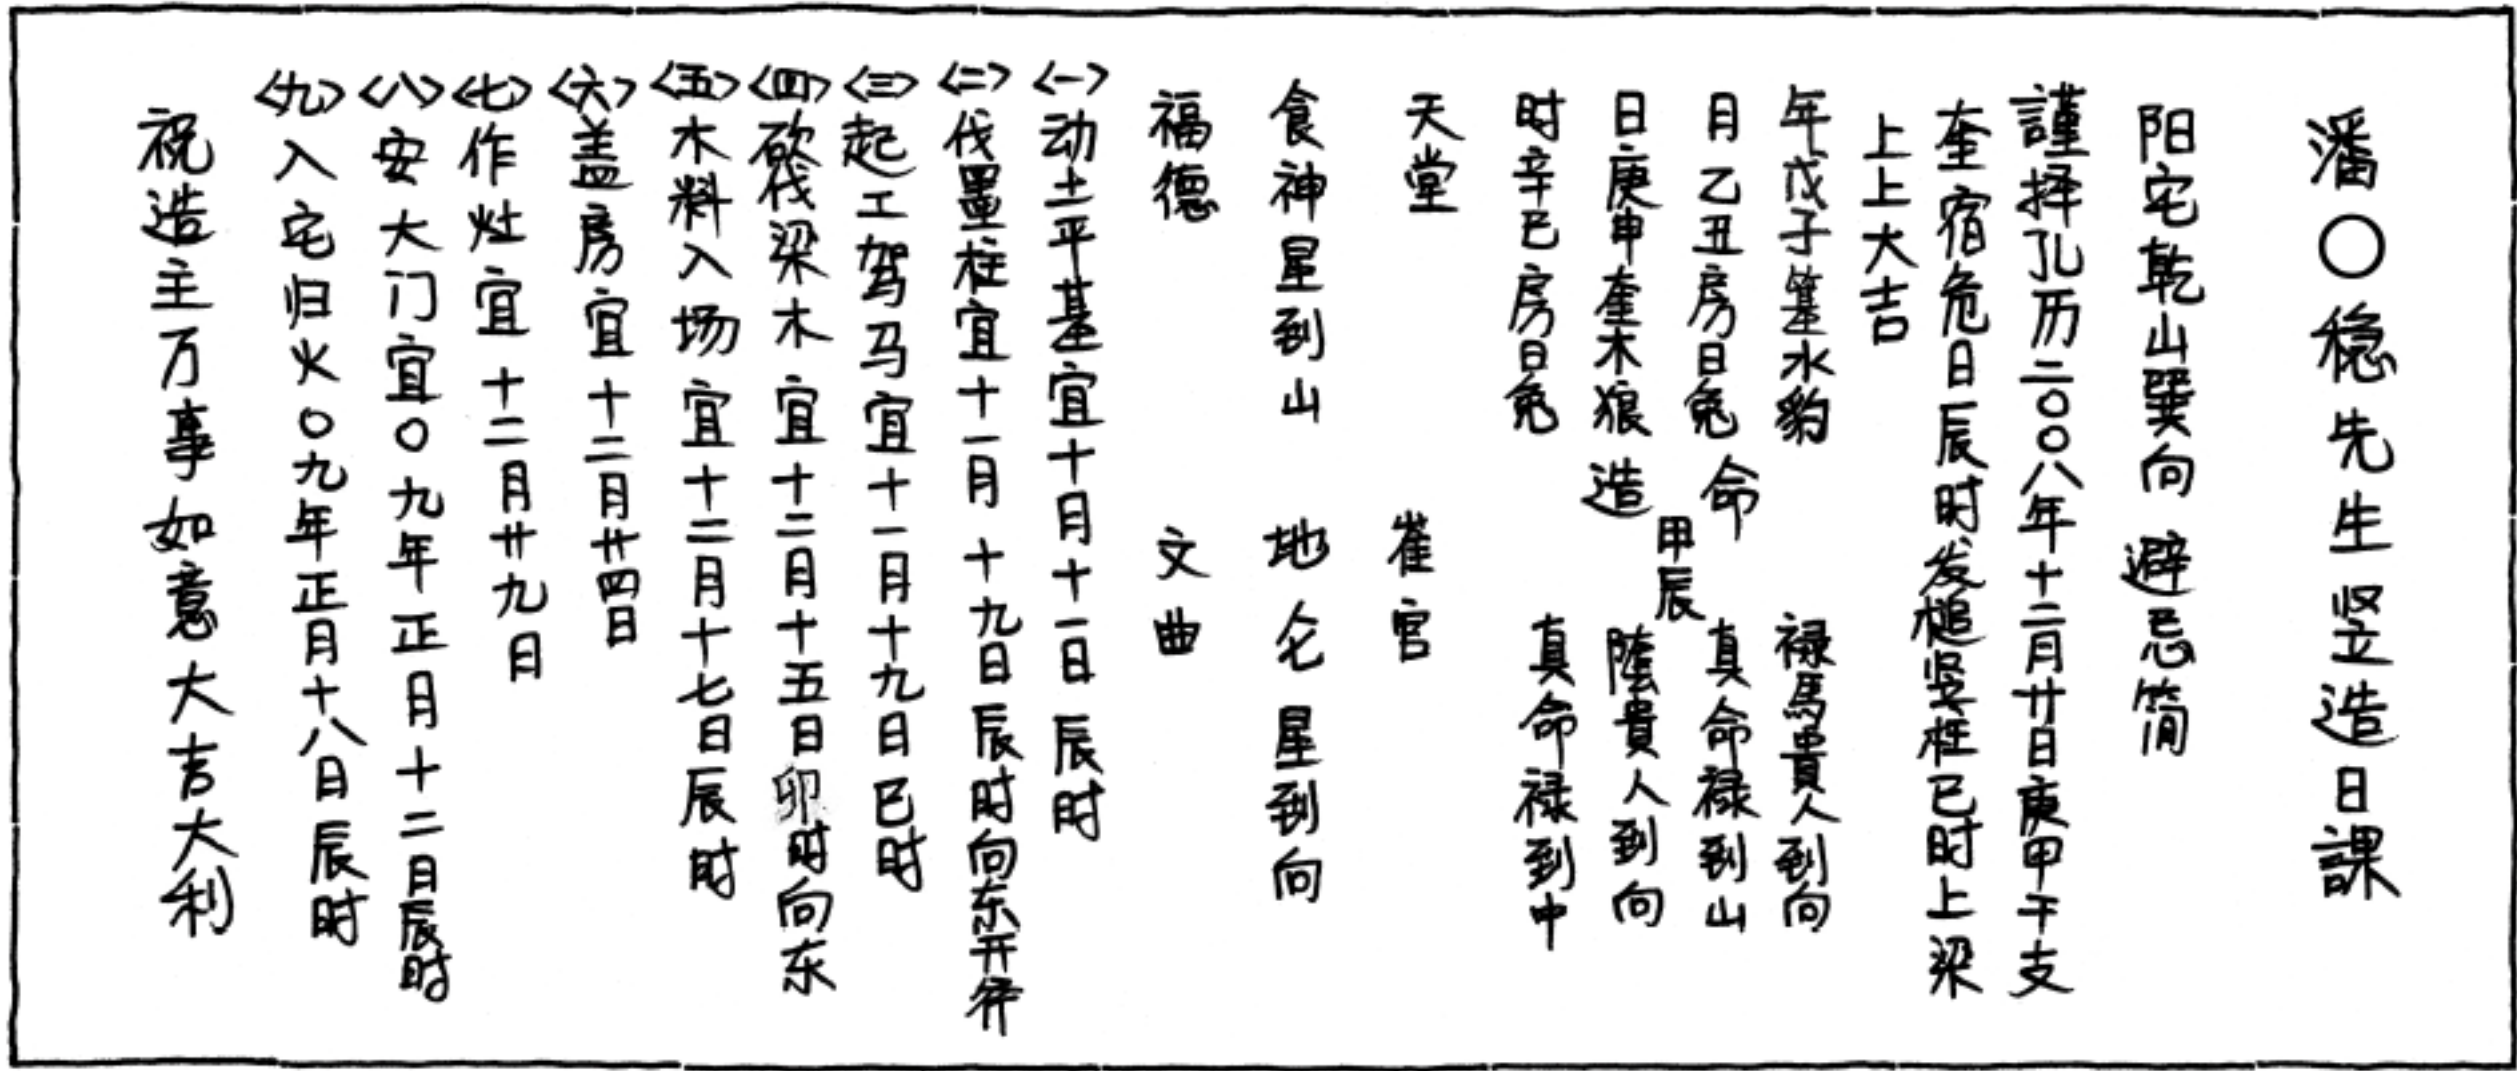 潘〇稳先生竖造日課
阳宅乾山巽向 避忌简
謹择孔历二〇〇八年十二月廿日庚甲干支
奎宿危日辰时发槌竖柱巳时上梁
上上大吉
年戊子箕水豹 禄馬貴人到向
月乙丑房日兔 命 真命禄到山
甲辰
日庚申奎木狼 造 陰貴人到向
时辛巳房日兔 真命禄到中
天堂 崔官
食神星到山 地仑星到向
福德 文曲
<一>动土平基宜十月十一日辰时
<二>伐墨柱宜十一月十九日辰时向东开斧
<三>起工驾马宜十一月十九日巳时
<四>砍伐梁木宜十二月十五日卯时向东
<五>木料入场宜十二月十七日辰时
<六>盖房宜十二月廿四日
<七>作灶宜十二月廿九日
<八>安大门宜〇九年正月十二日辰时
<九>入宅归火〇九年正月十八日辰时
祝造主万事如意大吉大利